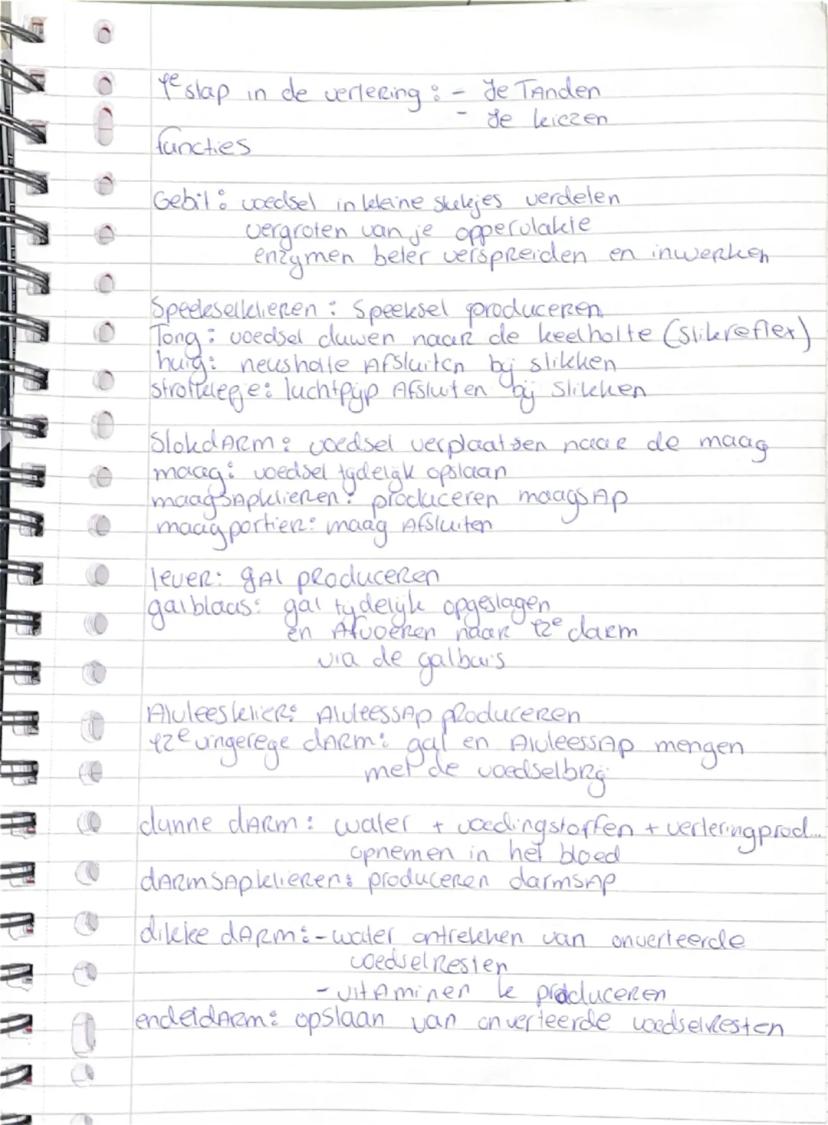 1e stap in de vertering: - Je TAnden
- Je kiezen
functies
Gebit: voedsel in kleine stukjes verdelen
vergroten van je oppervlakte
enzymen beter verspreiden en inwerken
Speekselklieren: Speeksel produceren
Tong: voedsel duwen naar de keelholte (slikreflex)
huig: neusholte Afsluiten bij slikken
strotteklepje: luchtpijp Afsluiten bij slikken
SlokdARm: voedsel verplaatsen naar de maag
maag: voedsel tijdelijk opslaan
maagsApklieren: produceren maagsAp
maagportier: maag Afsluiten
lever: gAl produceren
galblaas: gal tijdelijk opgeslagen
en Afvoeren naar 12e darm
via de galbuis
Alvleesklier: AlvleessAp produceren
12e vingerege dARm: gal en AlvleessAp mengen
met de voedselbrij
dunne dARm: water + voedingstoffen + verteringprod...
opnemen in het bloed
dARmsApklieren: produceren darmsAp
dikke dARm: - water ontrekken van onverteerde
voedselresten
- vitAminen k produceren
endeldARm: opslaan van onverteerde voedselresten